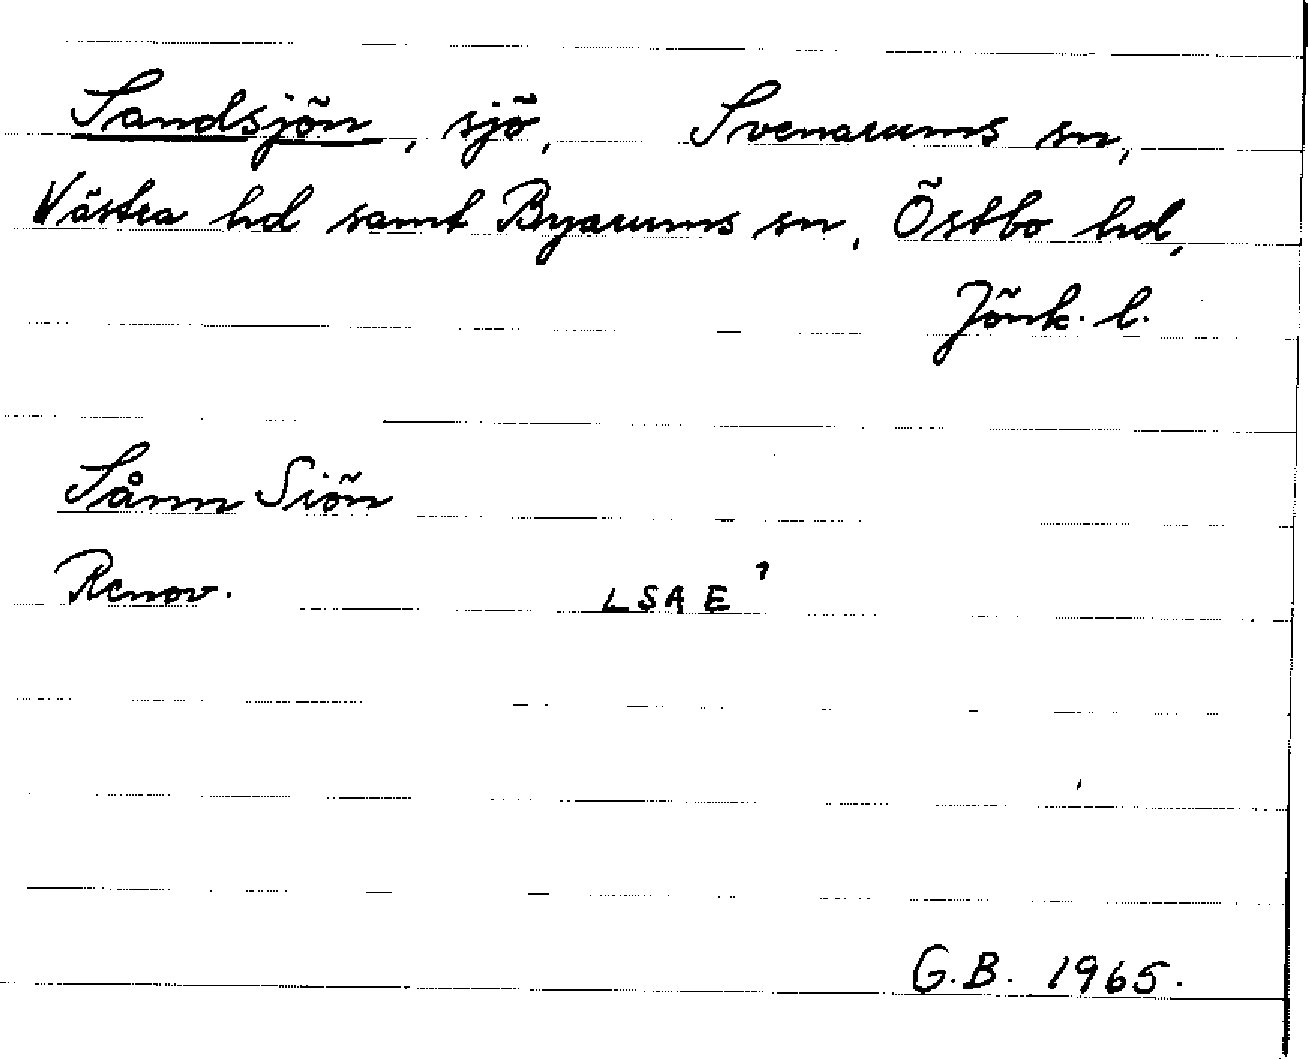 Sandsjön, sjö, Svenarums sn,
Västra hd samt Byarums sn, Östbo hd,
Jönk. l.
Sånn Siön
Renov. LSA E¹
G.B. 1965.